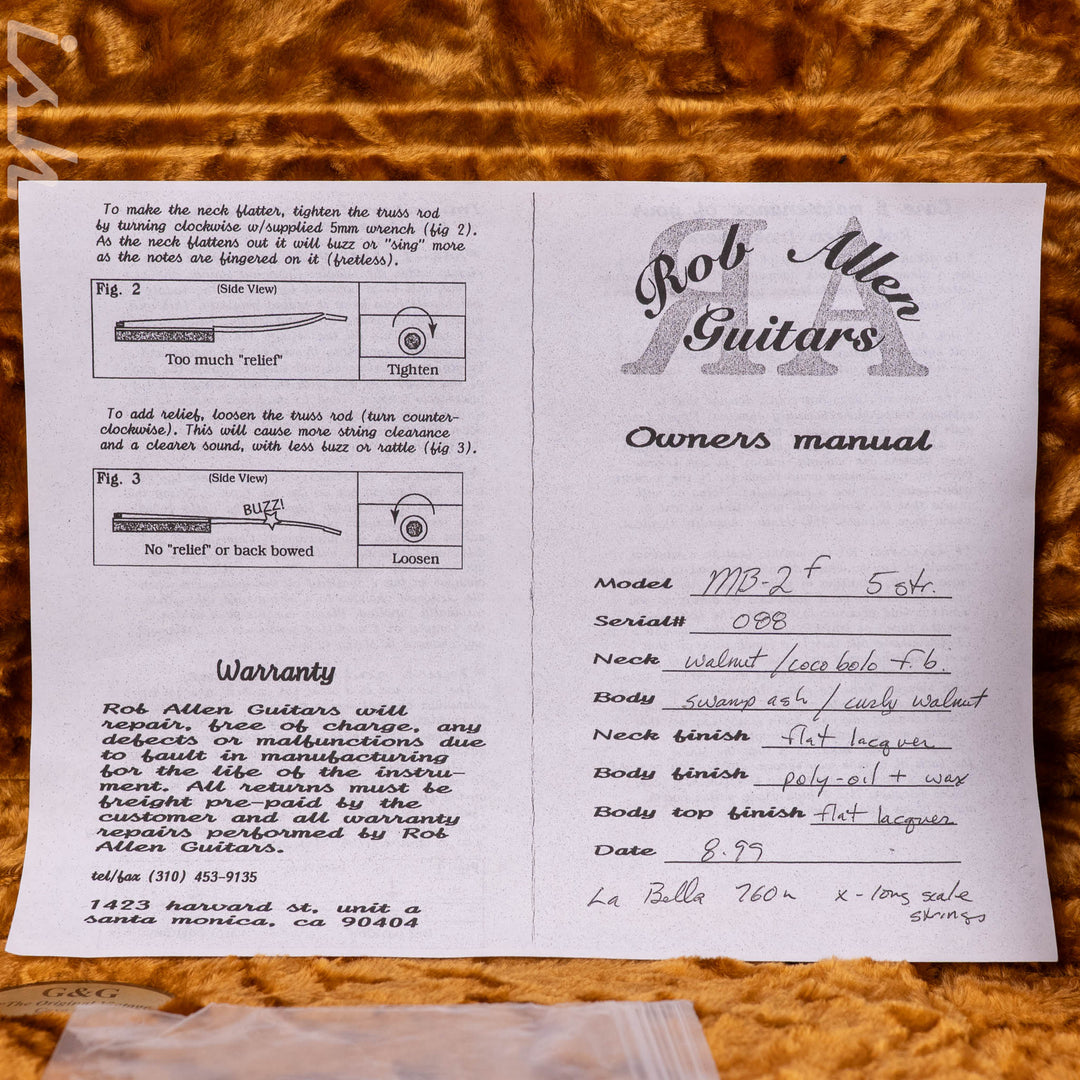 To make the neck flatter, tighten the truss rod
by turning clockwise w/supplied 5mm wrench (fig 2).
As the neck flattens out it will buzz or "sing" more
as the notes are fingered on it (fretless).
Fig. 2
(Side View)
Too much "relief"
Tighten
To add relief, loosen the truss rod (turn counter-
clockwise). This will cause more string clearance
and a clearer sound, with less buzz or rattle (fig 3).
Fig. 3
(Side View)
BUZZ!
No "relief" or back bowed
Loosen
Warranty
Rob Allen Guitars will
repair, free of charge, any
defects or malfunctions due
to fault in manufacturing
for the life of the instru-
ment. All returns must be
freight pre-paid by the
customer and all warranty
repairs performed by Rob
Allen Guitars.
tel/fax (310) 453-9135
1423 harvard st. unit a
santa monica, ca 90404
RA
Rob Allen
Guitars
Owners manual
Model MB-2 f 5 str.
Serial# 088
Neck walnut / coco bolo f.b.
Body swamp ash / curly walnut
Neck finish flat lacquer
Body finish poly-oil + wax
Body top finish flat lacquer
Date 8.99
La Bella 760n x-long scale
strings
G&G
The Original